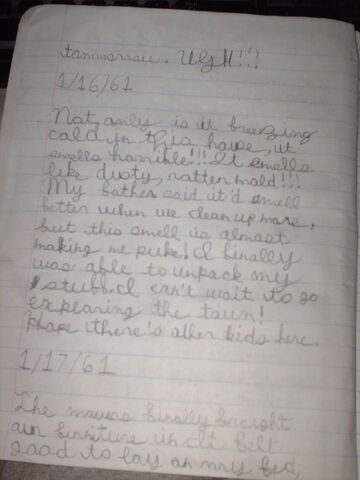 tommorrow. UGH!!!
1/16/61
Not only is it freezing
cold in this house, it
smells horrible!!! It smells
like dusty, rotten mold!!!
My father said it'd smell
better when we clean up more,
but this smell is almost
making me puke! I finally
was able to unpack my
stuff. I can't wait to go
exploring the town!
Hope there's other kids here.
1/17/61
The movers finally brought
our furniture in. It felt
good to lay on my bed,